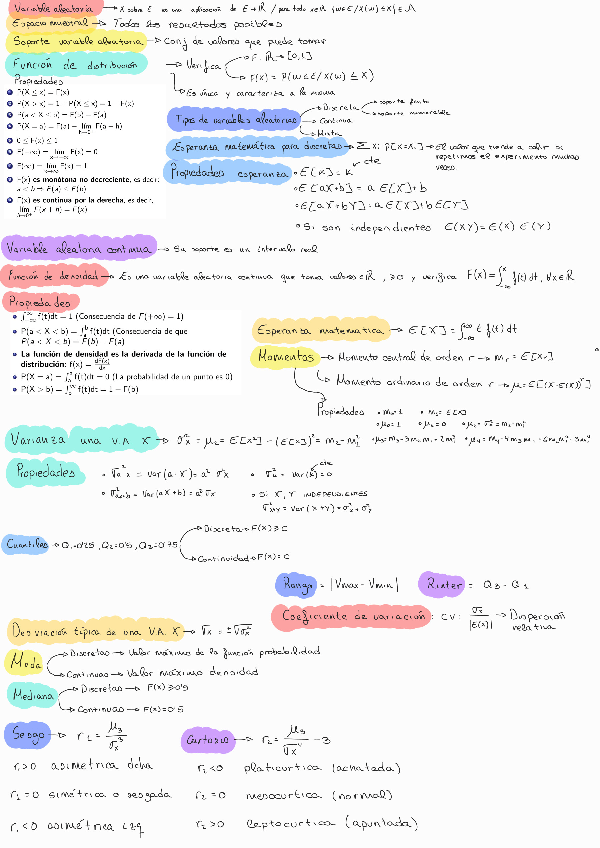 Variable aleatoria → X sobre E es una aplicación de E→ℝ / para todo x∈ℝ {w∈E/X(w)≤x}∈A
Espacio muestral → Todos los resultados posibles
Soporte variable aleatoria → Conj de valores que puede tomar
Función de distribución → Verifica → F: ℝ → [0,1]
→ F(x) = P(w∈E/X(w) ≤ x)
→ Es única y caracteriza a la misma
Propiedades
P(X ≤ x) = F(x)
P(X > x) = 1 − P(X ≤ x) = 1 − F(x)
P(a < X ≤ b) = F(b) − F(a)
P(X = a) = F(a) − lim F(a − h)
0 ≤ F(x) ≤ 1
F(−∞) = lim F(x) = 0
F(∞) = lim F(x) = 1
F(x) es monótona no decreciente, es decir,
a < b ⇒ F(a) ≤ F(b)
F(x) es continua por la derecha, es decir,
lim F(x + h) = F(x)
Tipos de variables aleatorias → Discreta → soporte finito
→ soporte numerable
→ Continua
→ Mixta
Esperanza matemática para discretas → Σ xi P[X=xi] → El valor que tiende a salir si
repetimos el experimento muchas
veces
Propiedades esperanza • E[K] = K → cte
• E[aX+b] = a E[X]+b
• E[aX+bY] = a E[X]+b E[Y]
• Si son independientes E(XY)=E(X) E(Y)
Variable aleatoria continua → Su soporte es un intervalo real
Función de densidad → Es una variable aleatoria continua que toma valores ∈ℝ, ≥0 y verifica F(x)=∫ f(t) dt, ∀x∈ℝ
Propiedades
∫ f(t)dt = 1 (Consecuencia de F(+∞) = 1)
P(a < X < b) = ∫ f(t)dt (Consecuencia de que
P(a < X < b) = F(b) − F(a)
La función de densidad es la derivada de la función de
distribución: f(x) = dF(x)/dx
P(X = a) = ∫ f(t)dt = 0 (La probabilidad de un punto es 0)
P(X > b) = ∫ f(t)dt = 1 − F(b)
Esperanza matemática → E[X] = ∫ t f(t) dt
Momentos → Momento central de orden r → mr = E[Xr]
→ Momento ordinario de orden r → μr = E[(X-E(X))^r]
Propiedades • m0=1 • m1 = E[X]
• μ0=1 • μ1=0 • μ2 = σx² = m2-m1²
Varianza una V.A. X → σx² = μ2 = E[X²] - (E[X])² = m2-m1²
Propiedades • σ²ax = Var(a·X) = a² σ²x • σ²k = Var(k) = 0 → cte
• σ²ax+b = Var(aX+b) = a² σ²x • Si X, Y INDEPENDIENTES
σ²x+y = Var(X+Y) = σ²x + σ²y
Cuantiles → Q1=0'25, Q2=0'5, Q3=0'75 → Discreta → F(x) ≥ C
→ Continuidad → F(x) = C
Rango = |Vmax - Vmin| Rinter = Q3 - Q1
Desviación típica de una V.A. X → σx = +√σ²x
Coeficiente de variación: CV = σx/|E(X)| → Dispersión
relativa
Moda → Discretas → Valor máximo de la función probabilidad
→ Continuas → Valor máximo densidad
Mediana → Discretas → F(x) ≥ 0'5
→ Continuas → F(x) = 0'5
Sesgo → r1 = μ3/σx³ Curtosis → r2 = μ4/σx⁴ - 3
r1>0 asimétrica dcha r2<0 platicurtica (achatada)
r1=0 simétrica o sesgada r2=0 mesocurtica (normal)
r1<0 asimétrica izq r2>0 leptocurtica (apuntada)